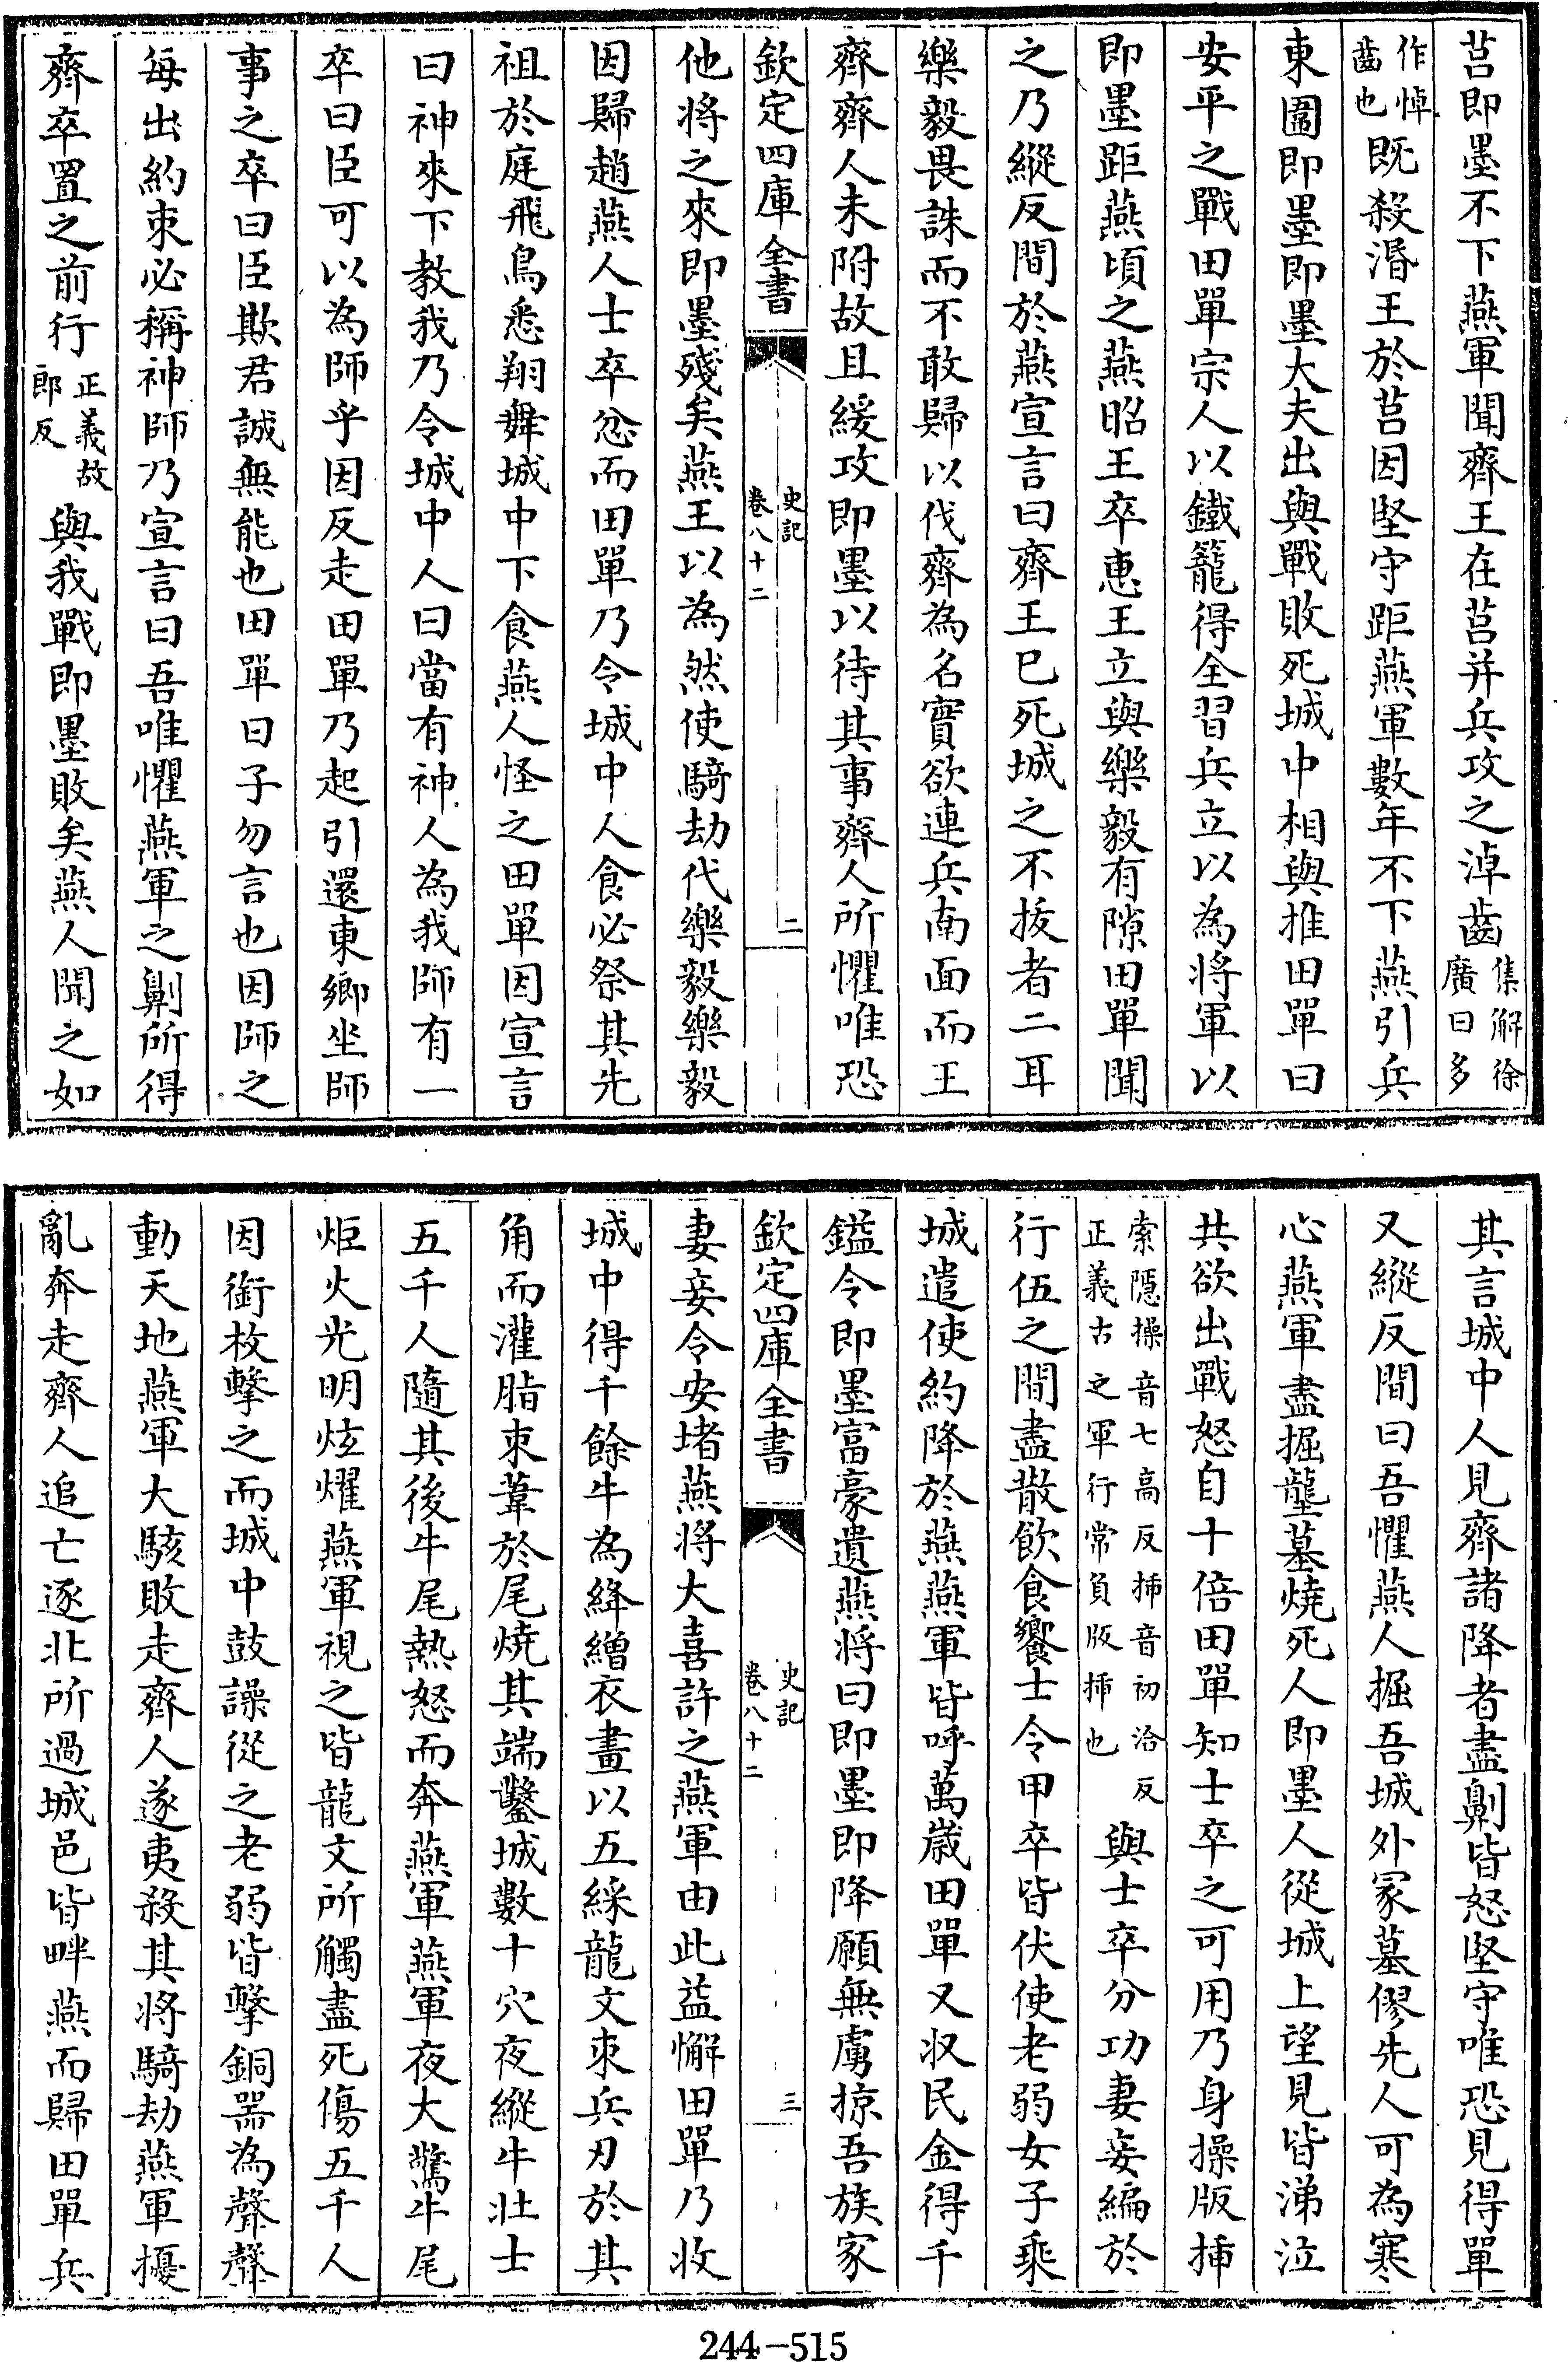 莒即墨不下燕軍聞齊王在莒并兵攻之淖齒集解徐廣曰多
作悼齒也既殺湣王於莒因堅守距燕軍數年不下燕引兵
東圍即墨即墨大夫出與戰敗死城中相與推田單曰
安平之戰田單宗人以鐵籠得全習兵立以為將軍以
即墨距燕頃之燕昭王卒惠王立與樂毅有隙田單聞
之乃縱反間於燕宣言曰齊王已死城之不拔者二耳
樂毅畏誅而不敢歸以伐齊為名實欲連兵南面而王
齊齊人未附故且緩攻即墨以待其事齊人所懼唯恐
欽定四庫全書 史記卷八十二 二
他將之來即墨殘矣燕王以為然使騎劫代樂毅樂毅
因歸趙燕人士卒忿而田單乃令城中人食必祭其先
祖於庭飛鳥悉翔舞城中下食燕人怪之田單因宣言
曰神來下教我乃令城中人曰當有神人為我師有一
卒曰臣可以為師乎因反走田單乃起引還東鄉坐師
事之卒曰臣欺君誠無能也田單曰子勿言也因師之
每出約束必稱神師乃宣言曰吾唯懼燕軍之劓所得
齊卒置之前行正義故郎反與我戰即墨敗矣燕人聞之如
其言城中人見齊諸降者盡劓皆怒堅守唯恐見得單
又縱反間曰吾懼燕人掘吾城外冢墓僇先人可為寒
心燕軍盡掘壟墓燒死人即墨人從城上望見皆涕泣
共欲出戰怒自十倍田單知士卒之可用乃身操版揷
索隱操音七高反揷音初洽反正義古之軍行常負版揷也與士卒分功妻妾編於
行伍之間盡散飲食饗士令甲卒皆伏使老弱女子乘
城遣使約降於燕燕軍皆呼萬歲田單又収民金得千
鎰令即墨富豪遺燕將曰即墨即降願無虜掠吾族家
欽定四庫全書 史記卷八十二 三
妻妾令安堵燕將大喜許之燕軍由此益懈田單乃收
城中得千餘牛為絳繒衣畫以五綵龍文束兵刃於其
角而灌脂束葦於尾燒其端鑿城數十穴夜縱牛壯士
五千人隨其後牛尾熱怒而奔燕軍燕軍夜大驚牛尾
炬火光明炫燿燕軍視之皆龍文所觸盡死傷五千人
因銜枚擊之而城中鼓譟從之老弱皆擊銅器為聲聲
動天地燕軍大駭敗走齊人遂夷殺其將騎劫燕軍擾
亂奔走齊人追亡逐北所過城邑皆畔燕而歸田單兵
244-515